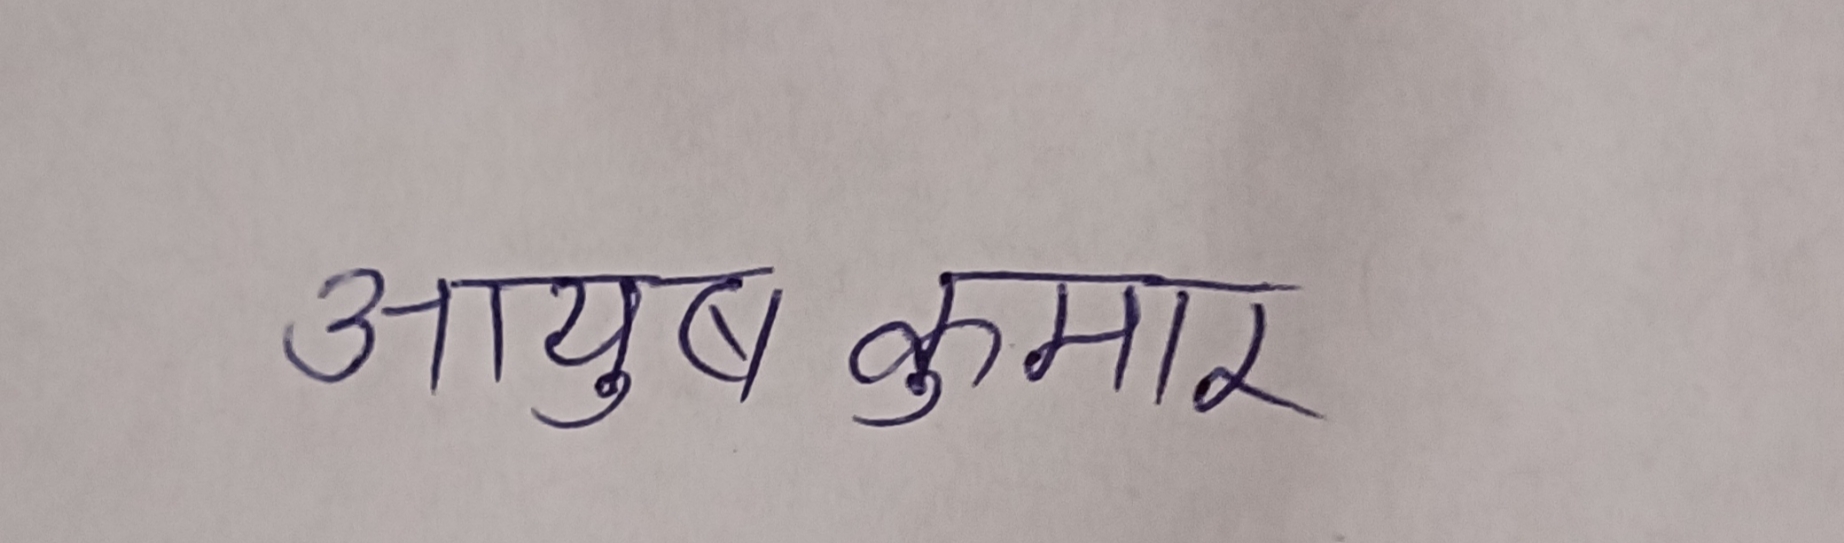 आयुब कुमार